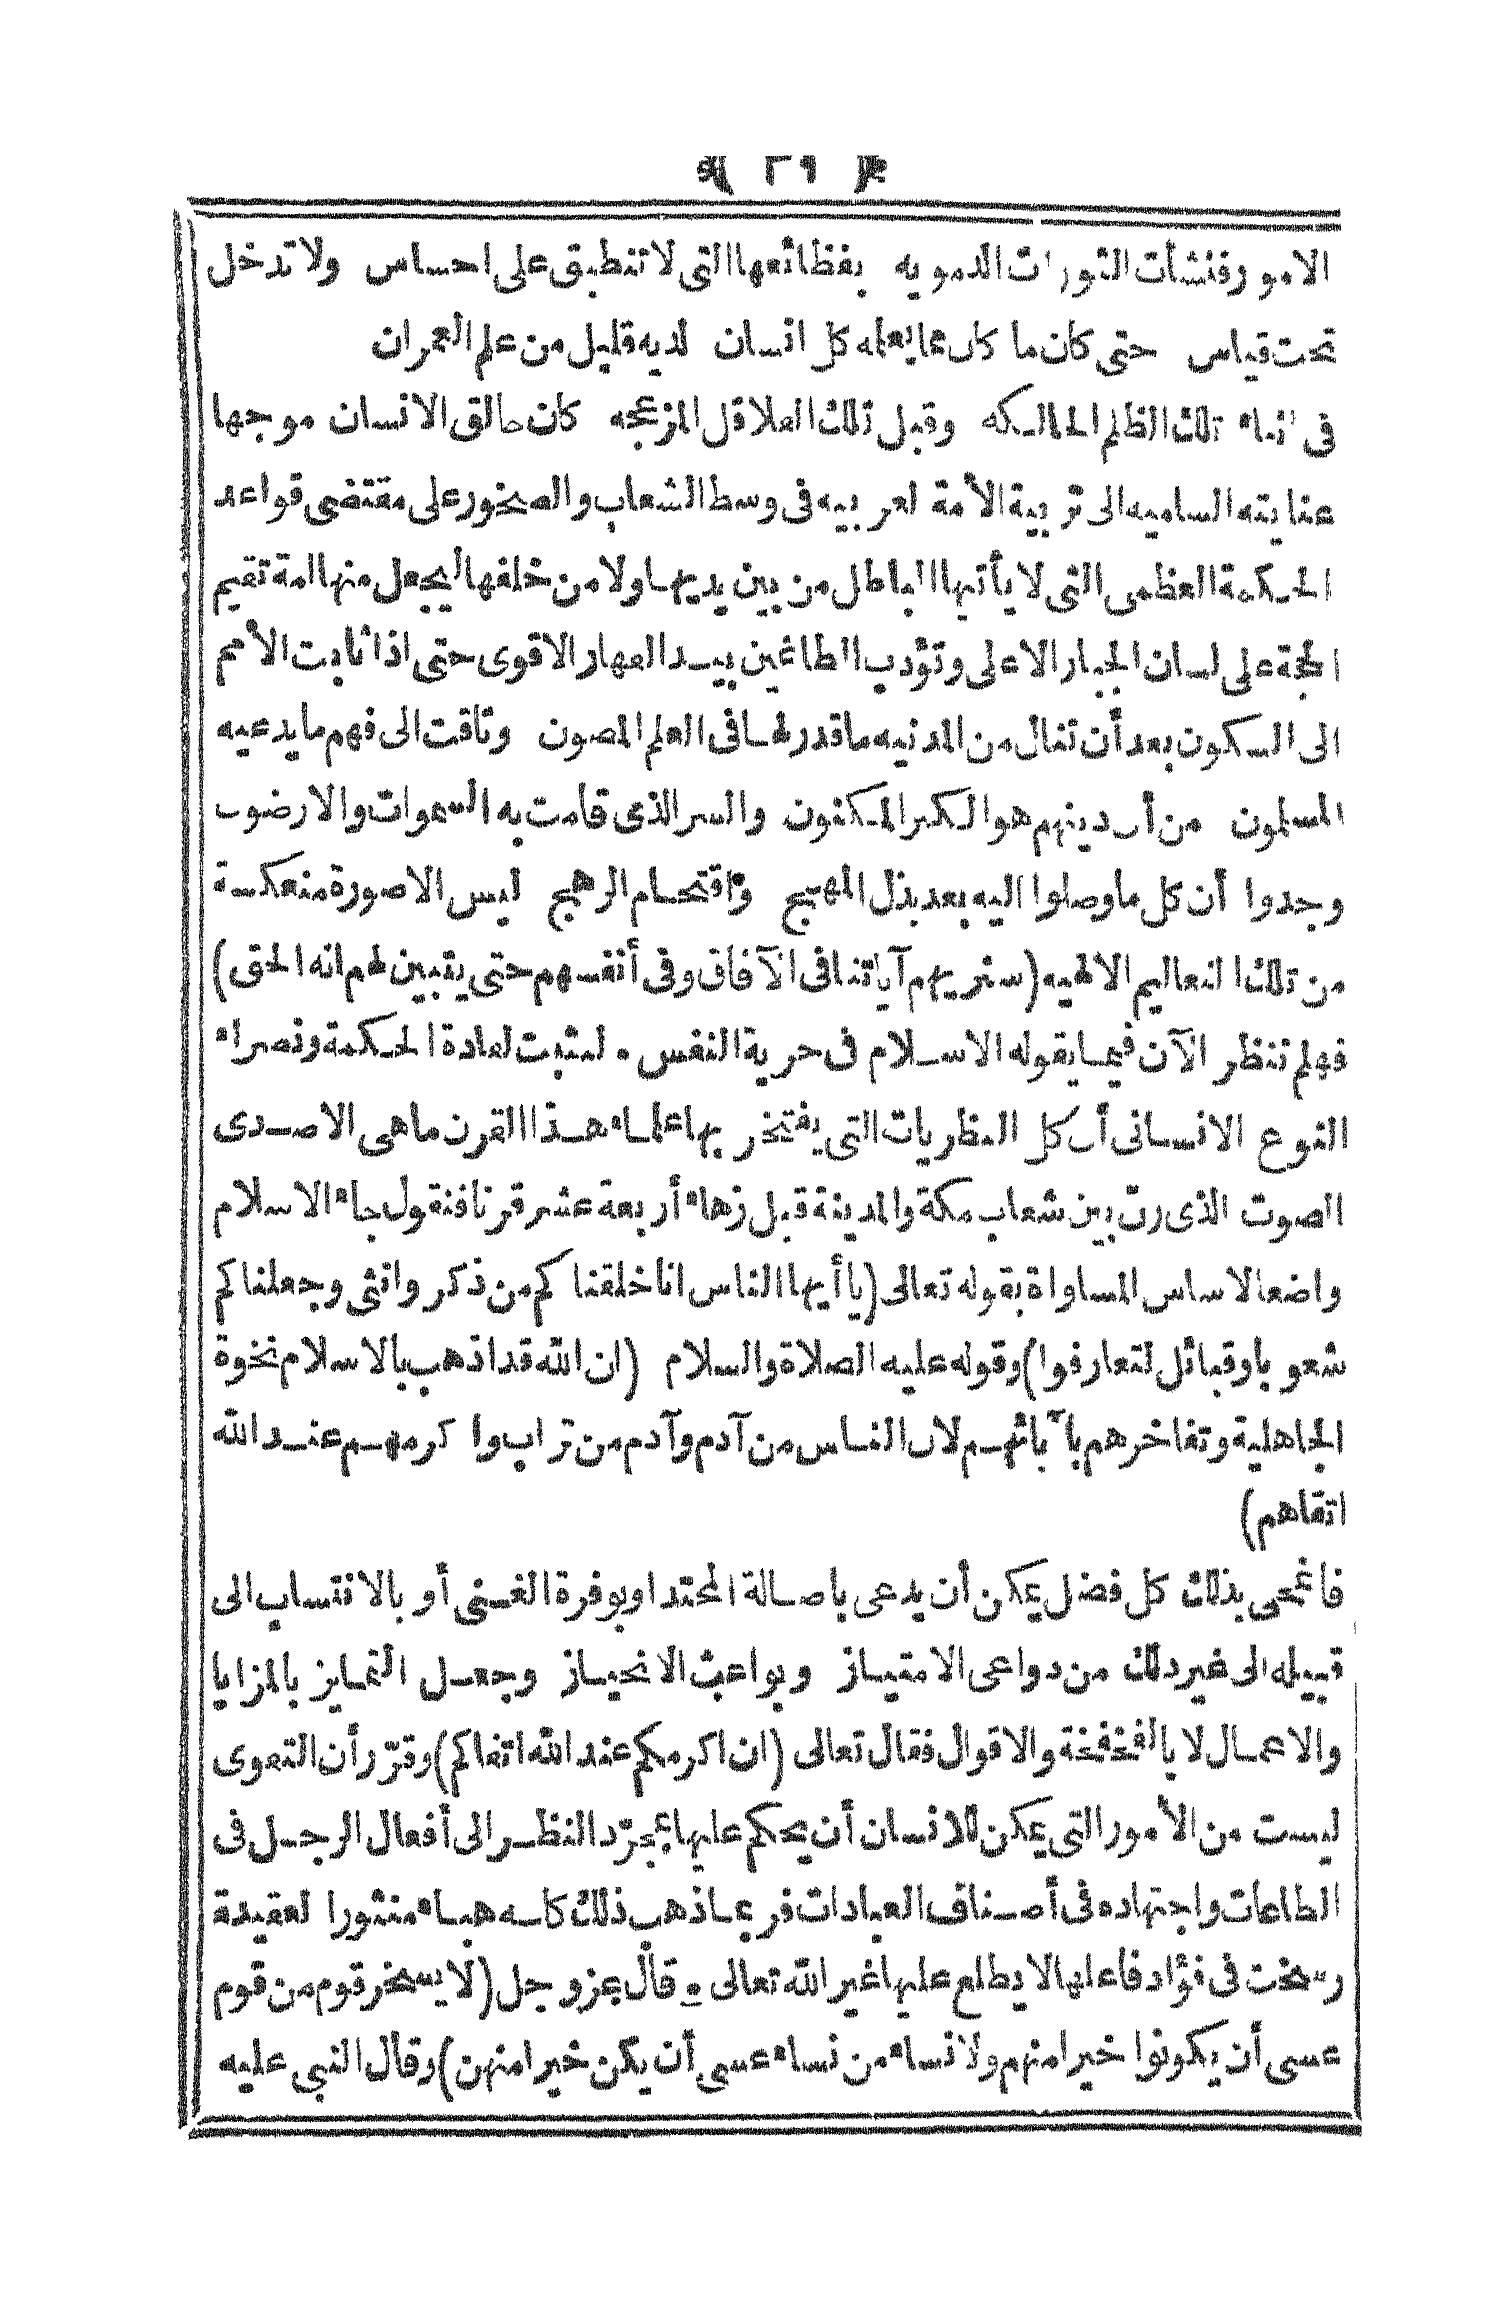 ﴿ ٢٩ ﴾
الامور فنشأت الثورات الدمويه بفظائعها التى لا تنطبق على احساس ولا تدخل
تحت قياس حتى كان ما كان مما يعلمه كل انسان لديه قليل من علم العمران
فى اثناء تلك الظلم الحالكه وقبل تلك القلاقل المزعجه كان خالق الانسان موجها
عنايته الساميه الى تربية الأمة العربيه فى وسط الشعاب والصخور على مقتضى قواعد
الحكمة العظمى التى لا يأتيها الباطل من بين يديها ولا من خلفها ليجعل منها امة تقيم
الحجة على لسان الجبار الاعلى وتؤدب الطاغين بيد القهار الاقوى حتى اذا ثابت الأمم
الى السكون بعد أن تنال من المدنيه ما قدر لها فى العلم المصون وتاقت الى فهم ما يدعيه
المسلمون من أن دينهم هو الكنز المكنون والسر الذى قامت به السموات والارضون
وجدوا أن كل ما وصلوا اليه بعد بذل المهج واقتحام الرهج ليس الا صورة منعكسة
من تلك التعاليم الالهيه (سنريهم آياتنا فى الآفاق وفى أنفسهم حتى يتبين لهم انه الحق)
فهلم ننظر الآن فيما يقوله الاسلام فى حرية النفس . لمثبت لعادة الحكمة ونصراء
النوع الانسانى أن كل النظريات التى يفتخر بها علماء هذا القرن ما هى الا صدى
الصوت الذى رن بين شعاب مكة والمدينة قبل زهاء أربعة عشر قرنا فنقول جاء الاسلام
واضعا لاساس المساواة بقوله تعالى (يا أيها الناس انا خلقناكم من ذكر وانثى وجعلناكم
شعوبا وقبائل لتعارفوا) وقوله عليه الصلاة والسلام (ان الله قد اذهب بالاسلام نخوة
الجاهلية وتفاخرهم بآبائهم لان الناس من آدم وآدم من تراب واكرمهم عند الله
اتقاهم)
فانمحى بذلك كل فضل يمكن أن يدعى باصالة المحتد او بوفرة الغنى أو بالانتساب الى
قبيله الى غير ذلك من دواعى الامتياز وبواعث الانحياز وجعل التمايز بالمزايا
والاعمال لا بالفخفخة والاقوال فقال تعالى (ان اكرمكم عند الله اتقاكم) وقرّر أن التقوى
ليست من الأمور التى يمكن للانسان أن يحكم عليها بمجرّد النظر الى أفعال الرجل فى
الطاعات واجتهاده فى أصناف العبادات فربما ذهب ذلك كله هباء منثورا لعقيدة
رسخت فى فؤاد فاعلها لا يطلع عليها غير الله تعالى . قال عزوجل (لا يسخر قوم من قوم
عسى أن يكونوا خيرا منهم ولا نساء من نساء عسى أن يكن خيرا منهن) وقال النبى عليه